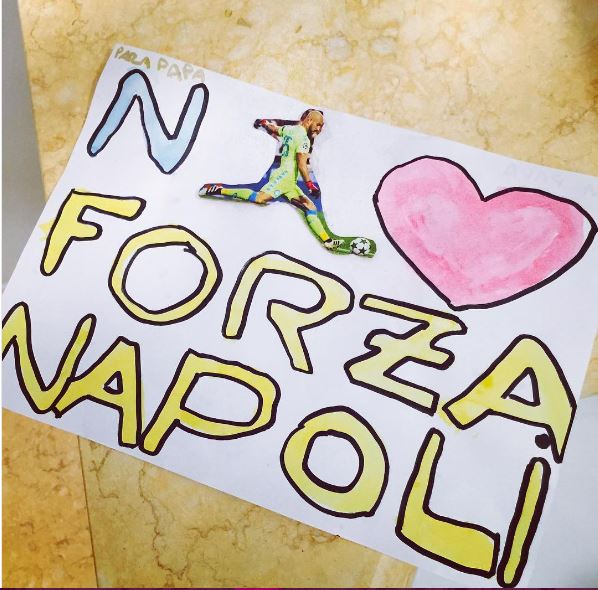 PARA PAPA
N
FORZA
NAPOLI